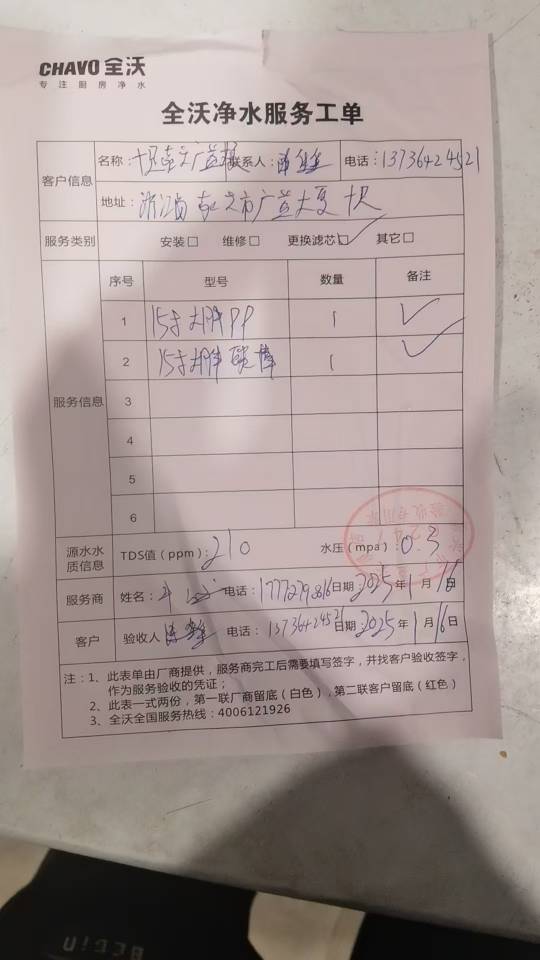 CHAVO 全沃
专注厨房净水
全沃净水服务工单
客户信息
名称: 联系人: 电话:13736424521
地址: 浙江省 市广益大厦
服务类别 安装□ 维修□ 更换滤芯□✓ 其它□
服务信息
序号 型号 数量 备注
1 15寸大胖PP 1 ✓
2 15寸大胖碳棒 1 ✓
3
4
5
6
源水水质信息 TDS值(ppm):210 水压(mpa):0.3
服务商 姓名: 电话: 日期:2025年1月16日
客户 验收人 电话:13736424521 日期:2025年1月16日
注:1、此表单由厂商提供,服务商完工后需要填写签字,并找客户验收签字,
作为服务验收的凭证;
2、此表一式两份,第一联厂商留底(白色),第二联客户留底(红色)
3、全沃全国服务热线:4006121926